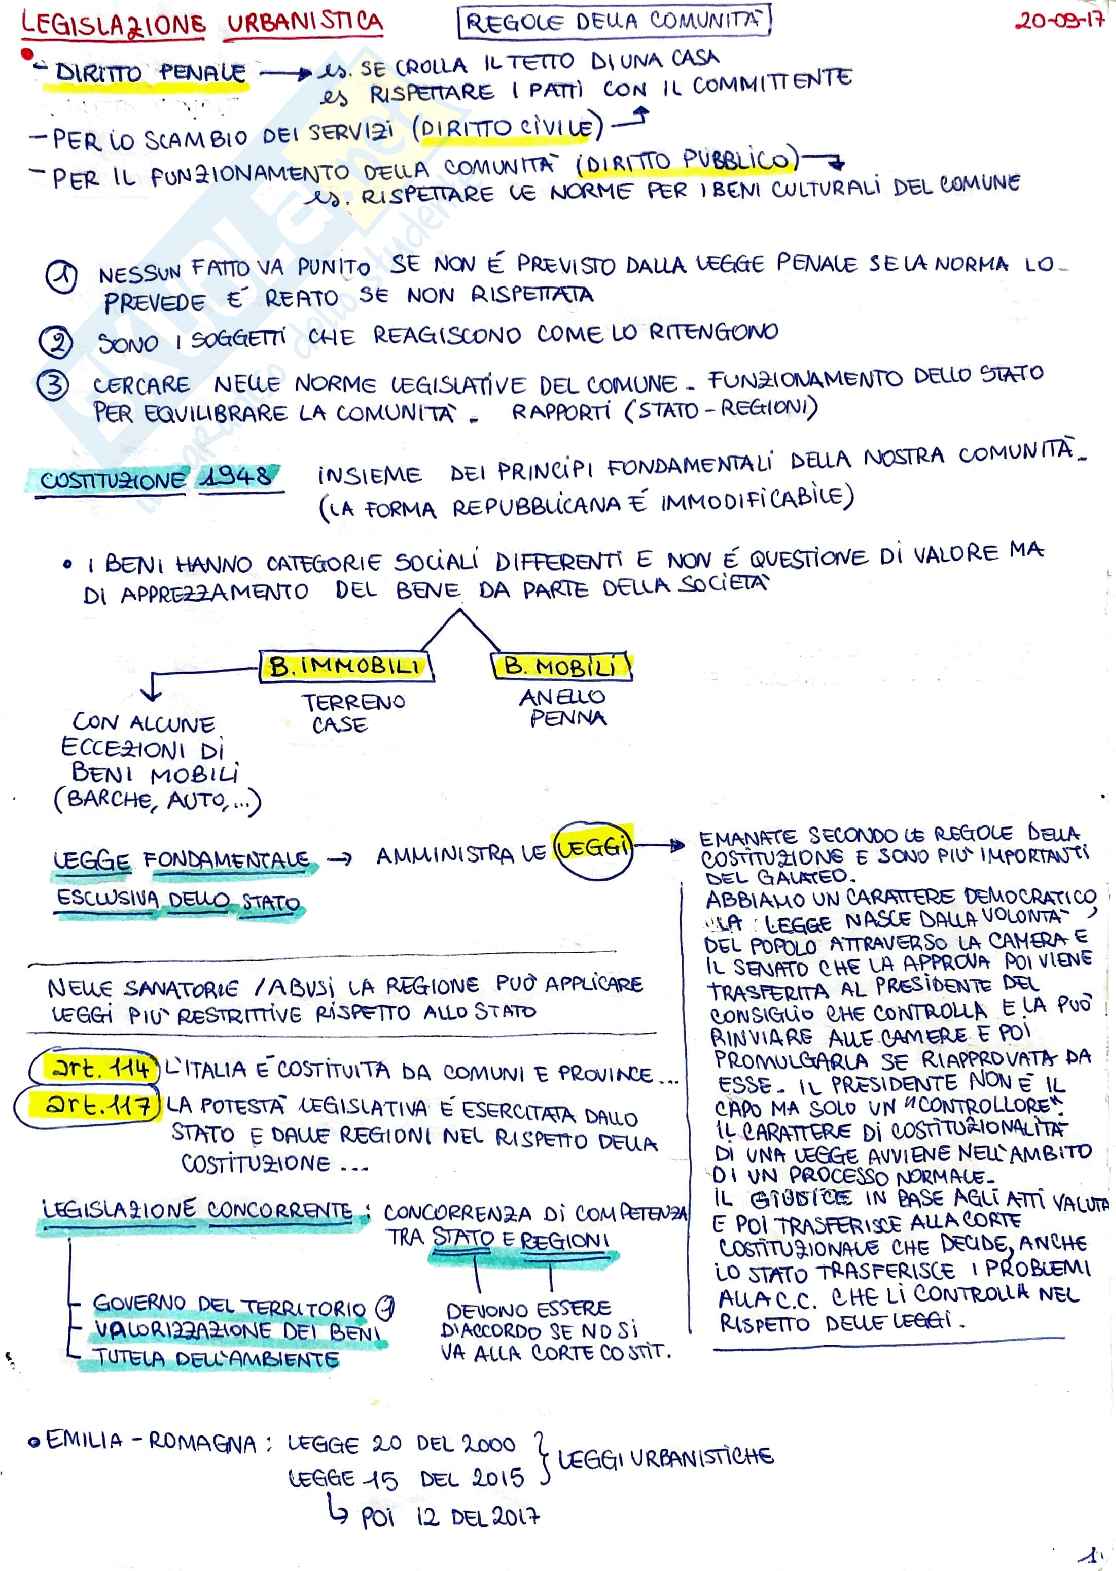 LEGISLAZIONE URBANISTICA
REGOLE DELLA COMUNITÀ
20-09-17
- DIRITTO PENALE → es. SE CROLLA IL TETTO DI UNA CASA
es RISPETTARE I PATTI CON IL COMMITTENTE
- PER LO SCAMBIO DEI SERVIZI (DIRITTO CIVILE)
- PER IL FUNZIONAMENTO DELLA COMUNITÀ (DIRITTO PUBBLICO)
es. RISPETTARE LE NORME PER I BENI CULTURALI DEL COMUNE
1 NESSUN FATTO VA PUNITO SE NON É PREVISTO DALLA LEGGE PENALE SE LA NORMA LO
PREVEDE É REATO SE NON RISPETTATA
2 SONO I SOGGETTI CHE REAGISCONO COME LO RITENGONO
3 CERCARE NELLE NORME LEGISLATIVE DEL COMUNE - FUNZIONAMENTO DELLO STATO
PER EQUILIBRARE LA COMUNITÀ - RAPPORTI (STATO-REGIONI)
COSTITUZIONE 1948 INSIEME DEI PRINCIPI FONDAMENTALI DELLA NOSTRA COMUNITÀ -
(LA FORMA REPUBBLICANA É IMMODIFICABILE)
• I BENI HANNO CATEGORIE SOCIALI DIFFERENTI E NON É QUESTIONE DI VALORE MA
DI APPREZZAMENTO DEL BENE DA PARTE DELLA SOCIETÀ
B. IMMOBILI
B. MOBILI
TERRENO
CASE
ANELLO
PENNA
CON ALCUNE
ECCEZIONI DI
BENI MOBILI
(BARCHE, AUTO,...)
LEGGE FONDAMENTALE → AMMINISTRA LE LEGGI →
ESCLUSIVA DELLO STATO
EMANATE SECONDO LE REGOLE DELLA
COSTITUZIONE E SONO PIÙ IMPORTANTI
DEL GALATEO.
ABBIAMO UN CARATTERE DEMOCRATICO,
"LA LEGGE NASCE DALLA VOLONTÀ
DEL POPOLO ATTRAVERSO LA CAMERA E
IL SENATO CHE LA APPROVA POI VIENE
TRASFERITA AL PRESIDENTE DEL
CONSIGLIO CHE CONTROLLA E LA PUÒ
RINVIARE ALLE CAMERE E POI
PROMULGARLA SE RIAPPROVATA DA
ESSE - IL PRESIDENTE NON É IL
CAPO MA SOLO UN "CONTROLLORE".
IL CARATTERE DI COSTITUZIONALITÀ
DI UNA LEGGE AVVIENE NELL'AMBITO
DI UN PROCESSO NORMALE -
IL GIUDICE IN BASE AGLI ATTI VALUTA
E POI TRASFERISCE ALLA CORTE
COSTITUZIONALE CHE DECIDE, ANCHE
LO STATO TRASFERISCE I PROBLEMI
ALLA C.C. CHE LI CONTROLLA NEL
RISPETTO DELLE LEGGI.
NELLE SANATORIE / ABUSI LA REGIONE PUÒ APPLICARE
LEGGI PIÙ RESTRITTIVE RISPETTO ALLO STATO
art. 114 L'ITALIA É COSTITUITA DA COMUNI E PROVINCE...
art. 117 LA POTESTÀ LEGISLATIVA É ESERCITATA DALLO
STATO E DALLE REGIONI NEL RISPETTO DELLA
COSTITUZIONE ...
LEGISLAZIONE CONCORRENTE : CONCORRENZA DI COMPETENZA
TRA STATO E REGIONI
GOVERNO DEL TERRITORIO
VALORIZZAZIONE DEI BENI
TUTELA DELL'AMBIENTE
DEVONO ESSERE
D'ACCORDO SE NO SI
VA ALLA CORTE COSTIT.
• EMILIA - ROMAGNA : LEGGE 20 DEL 2000
LEGGE 15 DEL 2015
LEGGI URBANISTICHE
↳ POI 12 DEL 2017
1